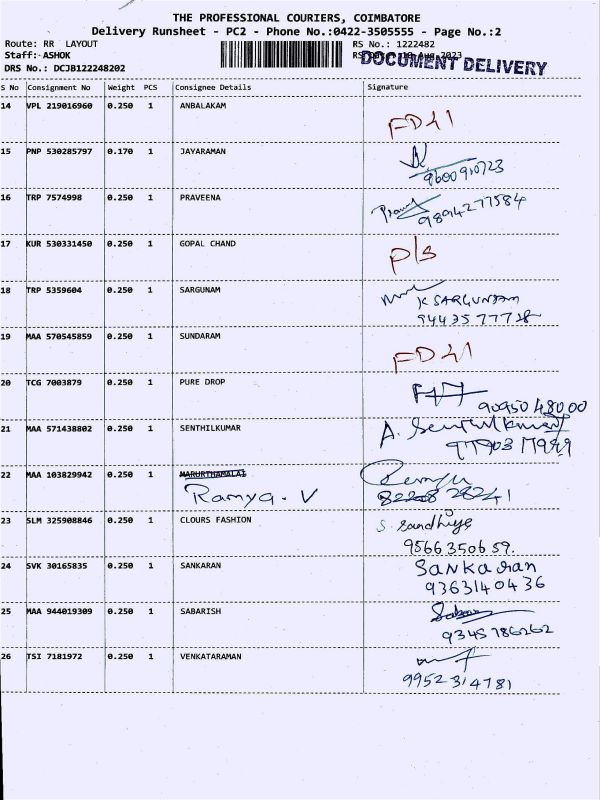 THE PROFESSIONAL COURIERS, COIMBATORE
Delivery Runsheet - PC2 - Phone No.:0422-3505555 - Page No.:2
Route: RR LAYOUT
RS No.: 1222482
Staff:-ASHOK
DOCUMENT DELIVERY
DRS No.: DCJB122248202
S No Consignment No Weight PCS Consignee Details Signature
14 VPL 219016960 0.250 1 ANBALAKAM
FD41
15 PNP 530285797 0.170 1 JAYARAMAN
9600910723
16 TRP 7574998 0.250 1 PRAVEENA
9894277584
17 KUR 530331450 0.250 1 GOPAL CHAND
P/s
18 TRP 5359604 0.250 1 SARGUNAM
K SARGUNAM
9443577728
19 MAA 570545859 0.250 1 SUNDARAM
FD41
20 TCG 7003879 0.250 1 PURE DROP
9095048000
21 MAA 571438802 0.250 1 SENTHILKUMAR
A. Senthilkumar
22 MAA 103829942 0.250 1 MARURTHAMALAI
Ramya. V
23 SLM 325908846 0.250 1 CLOURS FASHION
S. Sandhiya
9566350659.
24 SVK 30165835 0.250 1 SANKARAN
Sankaran
9363140436
25 MAA 944019309 0.250 1 SABARISH
9345786262
26 TSI 7181972 0.250 1 VENKATARAMAN
9952314781